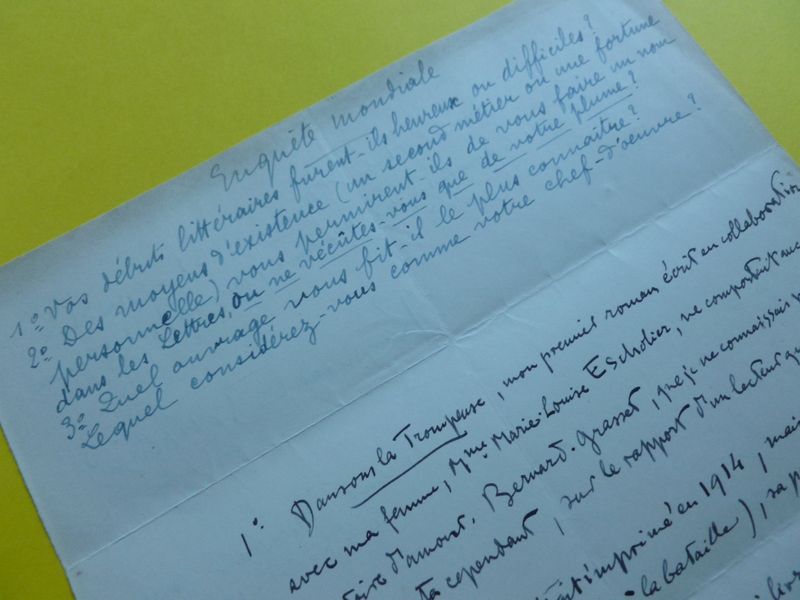 Enquête Mondiale
1º Vos débuts littéraires furent-ils heureux ou difficiles?
2º Des moyens d'existence (un second métier ou une fortune
personnelle) vous permirent-ils de vous faire un nom
dans les Lettres, ou ne vécûtes-vous que de votre plume?
3º Quel ouvrage vous fit-il le plus connaître?
Lequel considérez-vous comme votre chef-d'oeuvre?
1º Dansons la Trompeuse, mon premier roman écrit en collaboration
avec ma femme, Mme Marie-Louise Escholier, ne comportait
d'amour. Bernard-Grasset, que je ne connaissais
cependant, sur le rapport d'un lecteur
imprimé en 1914, mais
la bataille), sa